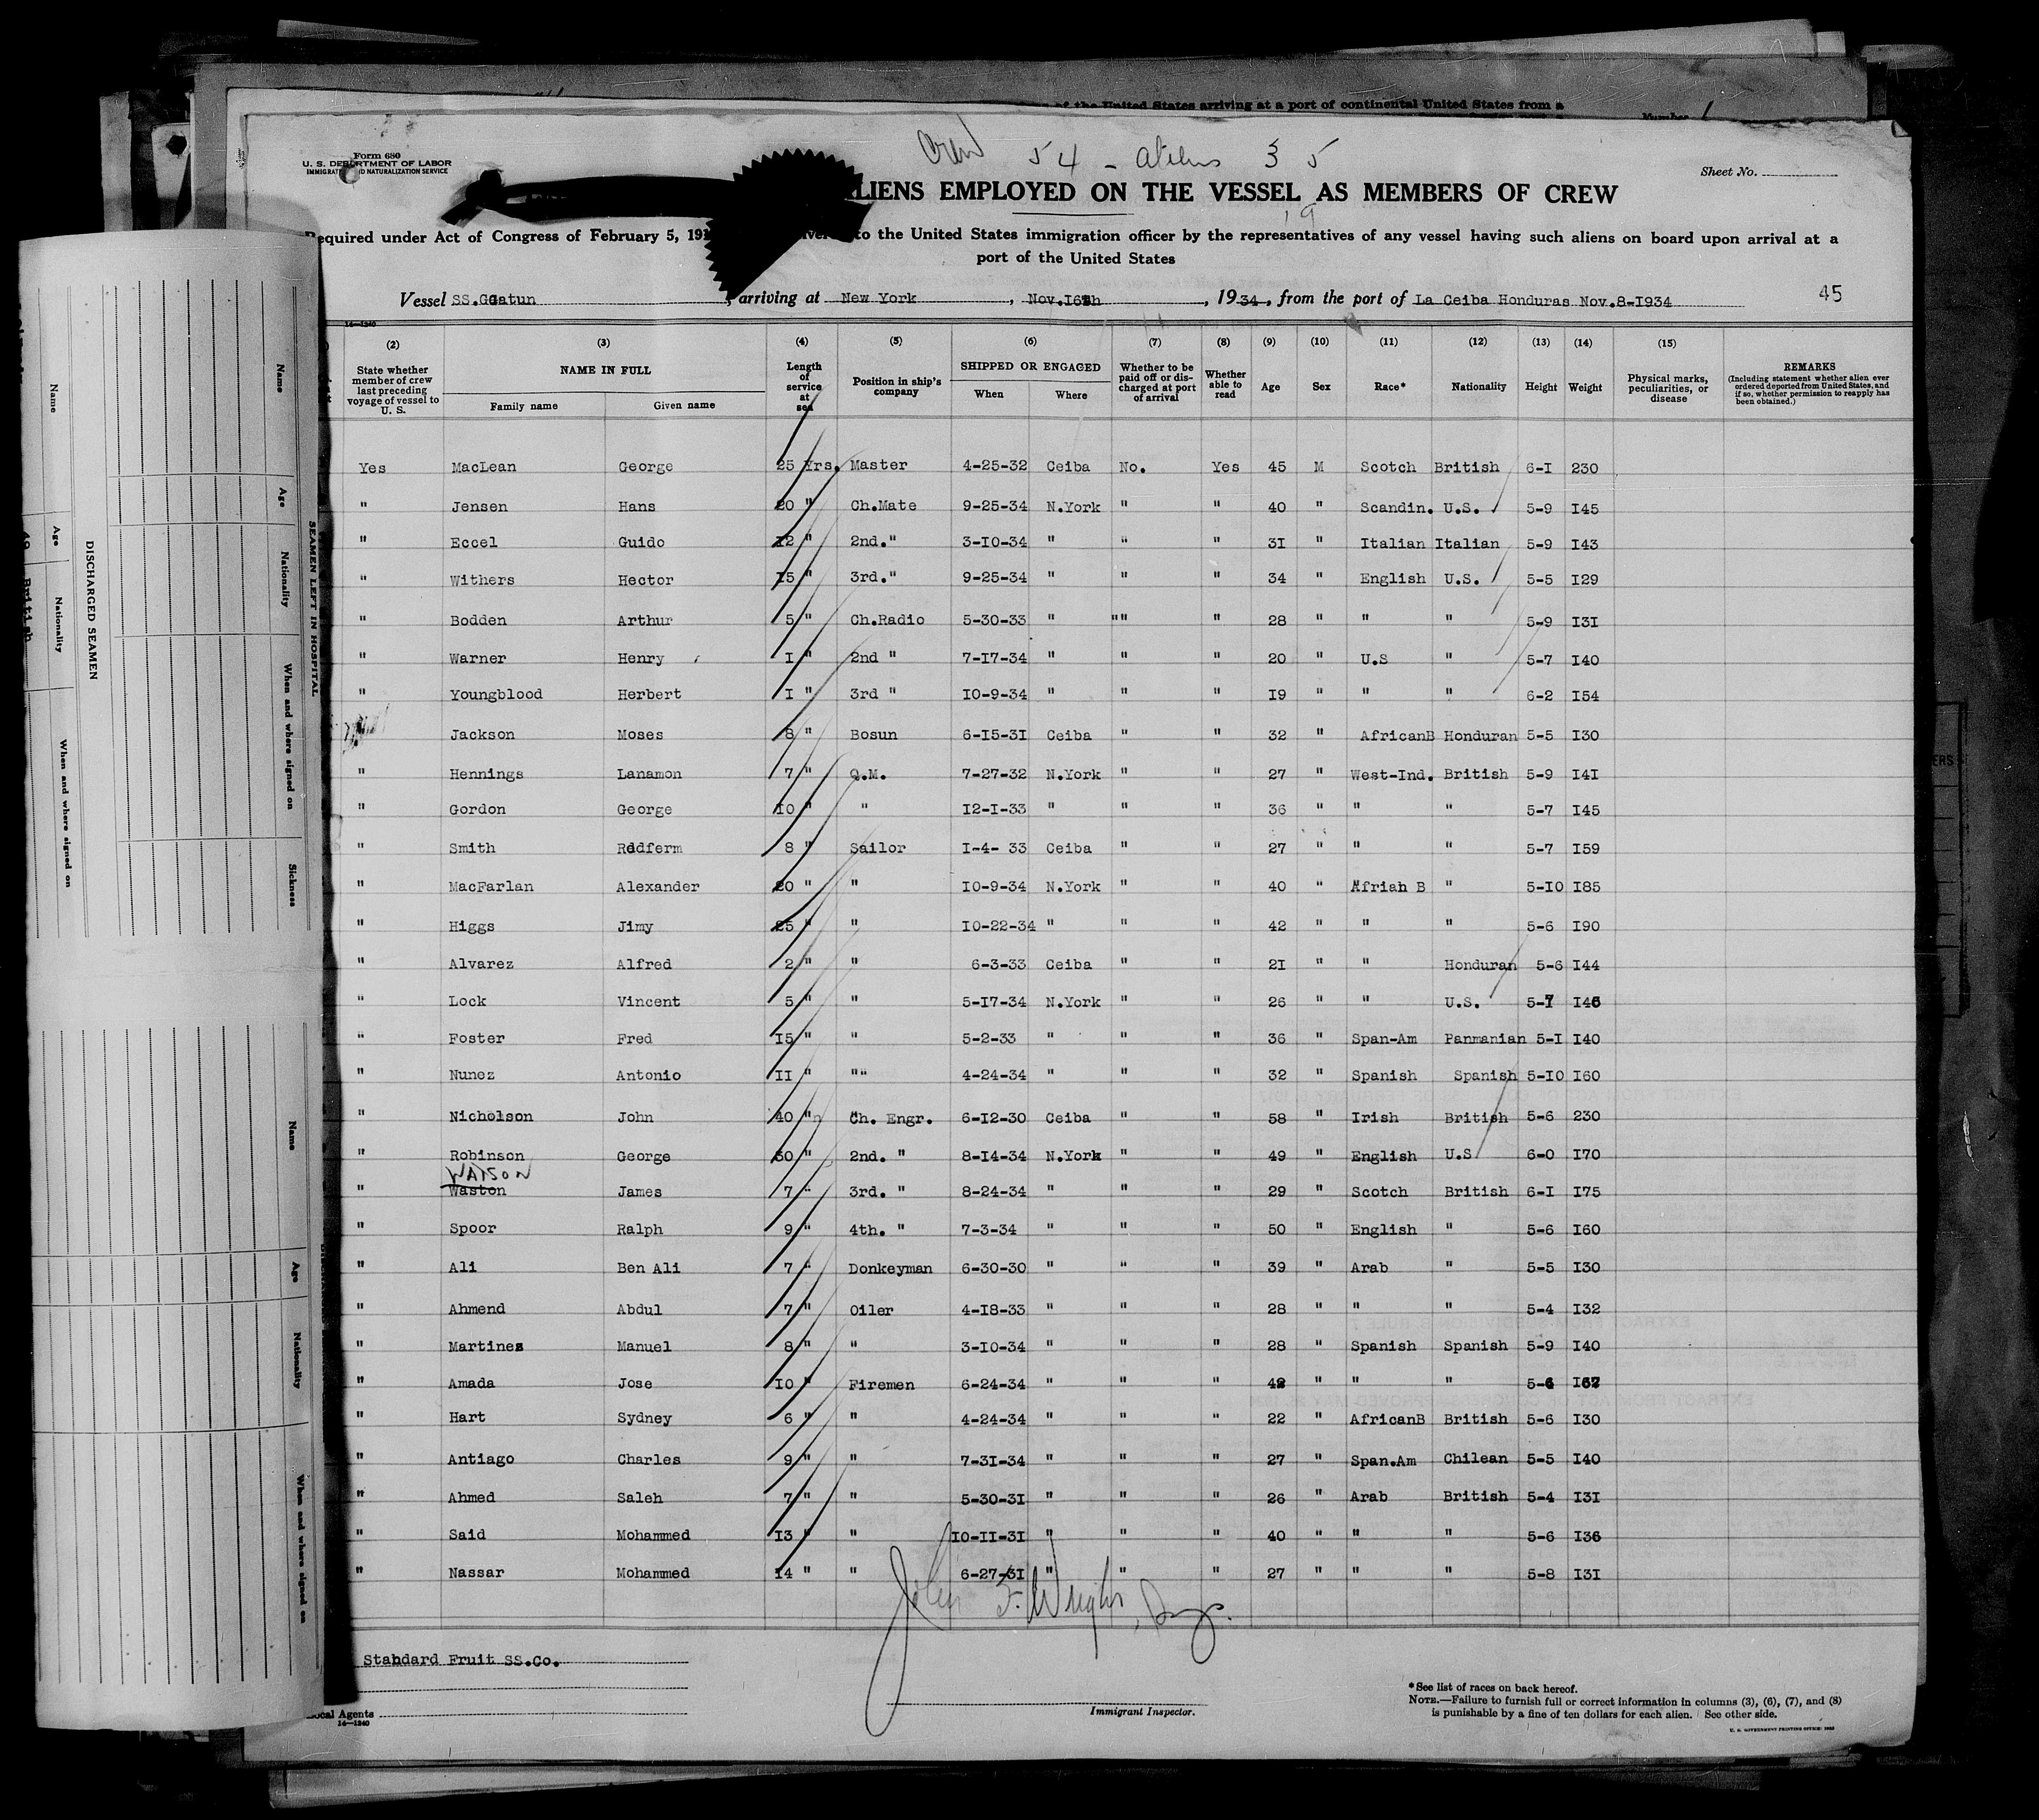 of the United States arriving at a port of continental United States from a
Number
Crew 54 - aliens 35
19
Form 680
U. S. DEPARTMENT OF LABOR
IMMIGRATION AND NATURALIZATION SERVICE
Sheet No.
LIENS EMPLOYED ON THE VESSEL AS MEMBERS OF CREW
Required under Act of Congress of February 5, 191 to the United States immigration officer by the representatives of any vessel having such aliens on board upon arrival at a
port of the United States
Vessel SS.Gatun, arriving at New York, Nov.16th, 1934, from the port of La Ceiba Honduras Nov.8-1934 45
14-1240
(2) (3) (4) (5) (6) (7) (8) (9) (10) (11) (12) (13) (14) (15)
State whether member of crew last preceding voyage of vessel to U. S. | NAME IN FULL | Family name | Given name | Length of service at sea | Position in ship's company | SHIPPED OR ENGAGED | When | Where | Whether to be paid off or discharged at port of arrival | Whether able to read | Age | Sex | Race* | Nationality | Height | Weight | Physical marks, peculiarities, or disease | REMARKS (Including statement whether alien ever ordered deported from United States, and if so, whether permission to reapply has been obtained.)
Yes MacLean George 25 Yrs. Master 4-25-32 Ceiba No. Yes 45 M Scotch British 6-I 230
" Jensen Hans 20 " Ch.Mate 9-25-34 N.York " " 40 " Scandin. U.S. 5-9 I45
" Eccel Guido I2 " 2nd." 3-I0-34 " " " 3I " Italian Italian 5-9 I43
" Withers Hector I5 " 3rd." 9-25-34 " " " 34 " English U.S. 5-5 I29
" Bodden Arthur 5 " Ch.Radio 5-30-33 " "" " 28 " " " 5-9 I3I
" Warner Henry I " 2nd " 7-I7-34 " " " 20 " U.S " 5-7 I40
" Youngblood Herbert I " 3rd " I0-9-34 " " " I9 " " " 6-2 I54
Jackson Moses 8 " Bosun 6-I5-3I Ceiba " " 32 " AfricanB Honduran 5-5 I30
" Hennings Lanamon 7 " Q.M. 7-27-32 N.York " " 27 " West-Ind. British 5-9 I4I
" Gordon George I0 " " I2-I-33 " " " 36 " " " 5-7 I45
" Smith Rddferm 8 " Sailor I-4- 33 Ceiba " " 27 " " " 5-7 I59
" MacFarlan Alexander 20 " " I0-9-34 N.York " " 40 " Afriah B " 5-I0 I85
" Higgs Jimy 25 " " I0-22-34 " " " 42 " " " 5-6 I90
" Alvarez Alfred 2 " " 6-3-33 Ceiba " " 2I " " Honduran 5-6 I44
" Lock Vincent 5 " " 5-I7-34 N.York " " 26 " " U.S. 5-7 I46
" Foster Fred I5 " " 5-2-33 " " " 36 " Span-Am Panmanian 5-I I40
" Nunez Antonio II " "" 4-24-34 " " " 32 " Spanish Spanish 5-I0 I60
" Nicholson John 40 " Ch. Engr. 6-I2-30 Ceiba " " 58 " Irish British 5-6 230
" Robinson George 30 " 2nd. " 8-I4-34 N.York " " 49 " English U.S 6-0 I70
WATSON
" Waston James 7 " 3rd. " 8-24-34 " " " 29 " Scotch British 6-I I75
" Spoor Ralph 9 " 4th. " 7-3-34 " " " 50 " English " 5-6 I60
" Ali Ben Ali 7 " Donkeyman 6-30-30 " " " 39 " Arab " 5-5 I30
" Ahmend Abdul 7 " Oiler 4-I8-33 " " " 28 " " " 5-4 I32
" Martines Manuel 8 " " 3-I0-34 " " " 28 " Spanish Spanish 5-9 I40
" Amada Jose I0 " Firemen 6-24-34 " " " 42 " " " 5-6 I67
" Hart Sydney 6 " " 4-24-34 " " " 22 " AfricanB British 5-6 I30
" Antiago Charles 9 " " 7-3I-34 " " " 27 " Span.Am Chilean 5-5 I40
" Ahmed Saleh 7 " " 5-30-3I " " " 26 " Arab British 5-4 I3I
" Said Mohammed I3 " " I0-II-3I " " " 40 " " " 5-6 I36
" Nassar Mohammed I4 " " 6-27-3I " " " 27 " " " 5-8 I3I
John F. Wright
Standard Fruit SS.Co.
Local Agents
14-1240
Immigrant Inspector.
*See list of races on back hereof.
NOTE.—Failure to furnish full or correct information in columns (3), (6), (7), and (8)
is punishable by a fine of ten dollars for each alien. See other side.
U. S. GOVERNMENT PRINTING OFFICE
Name Age Nationality When and where signed on
DISCHARGED SEAMEN
Name Age Nationality When and where signed on Sickness
SEAMEN LEFT IN HOSPITAL
British
Name Age Nationality When and where signed on